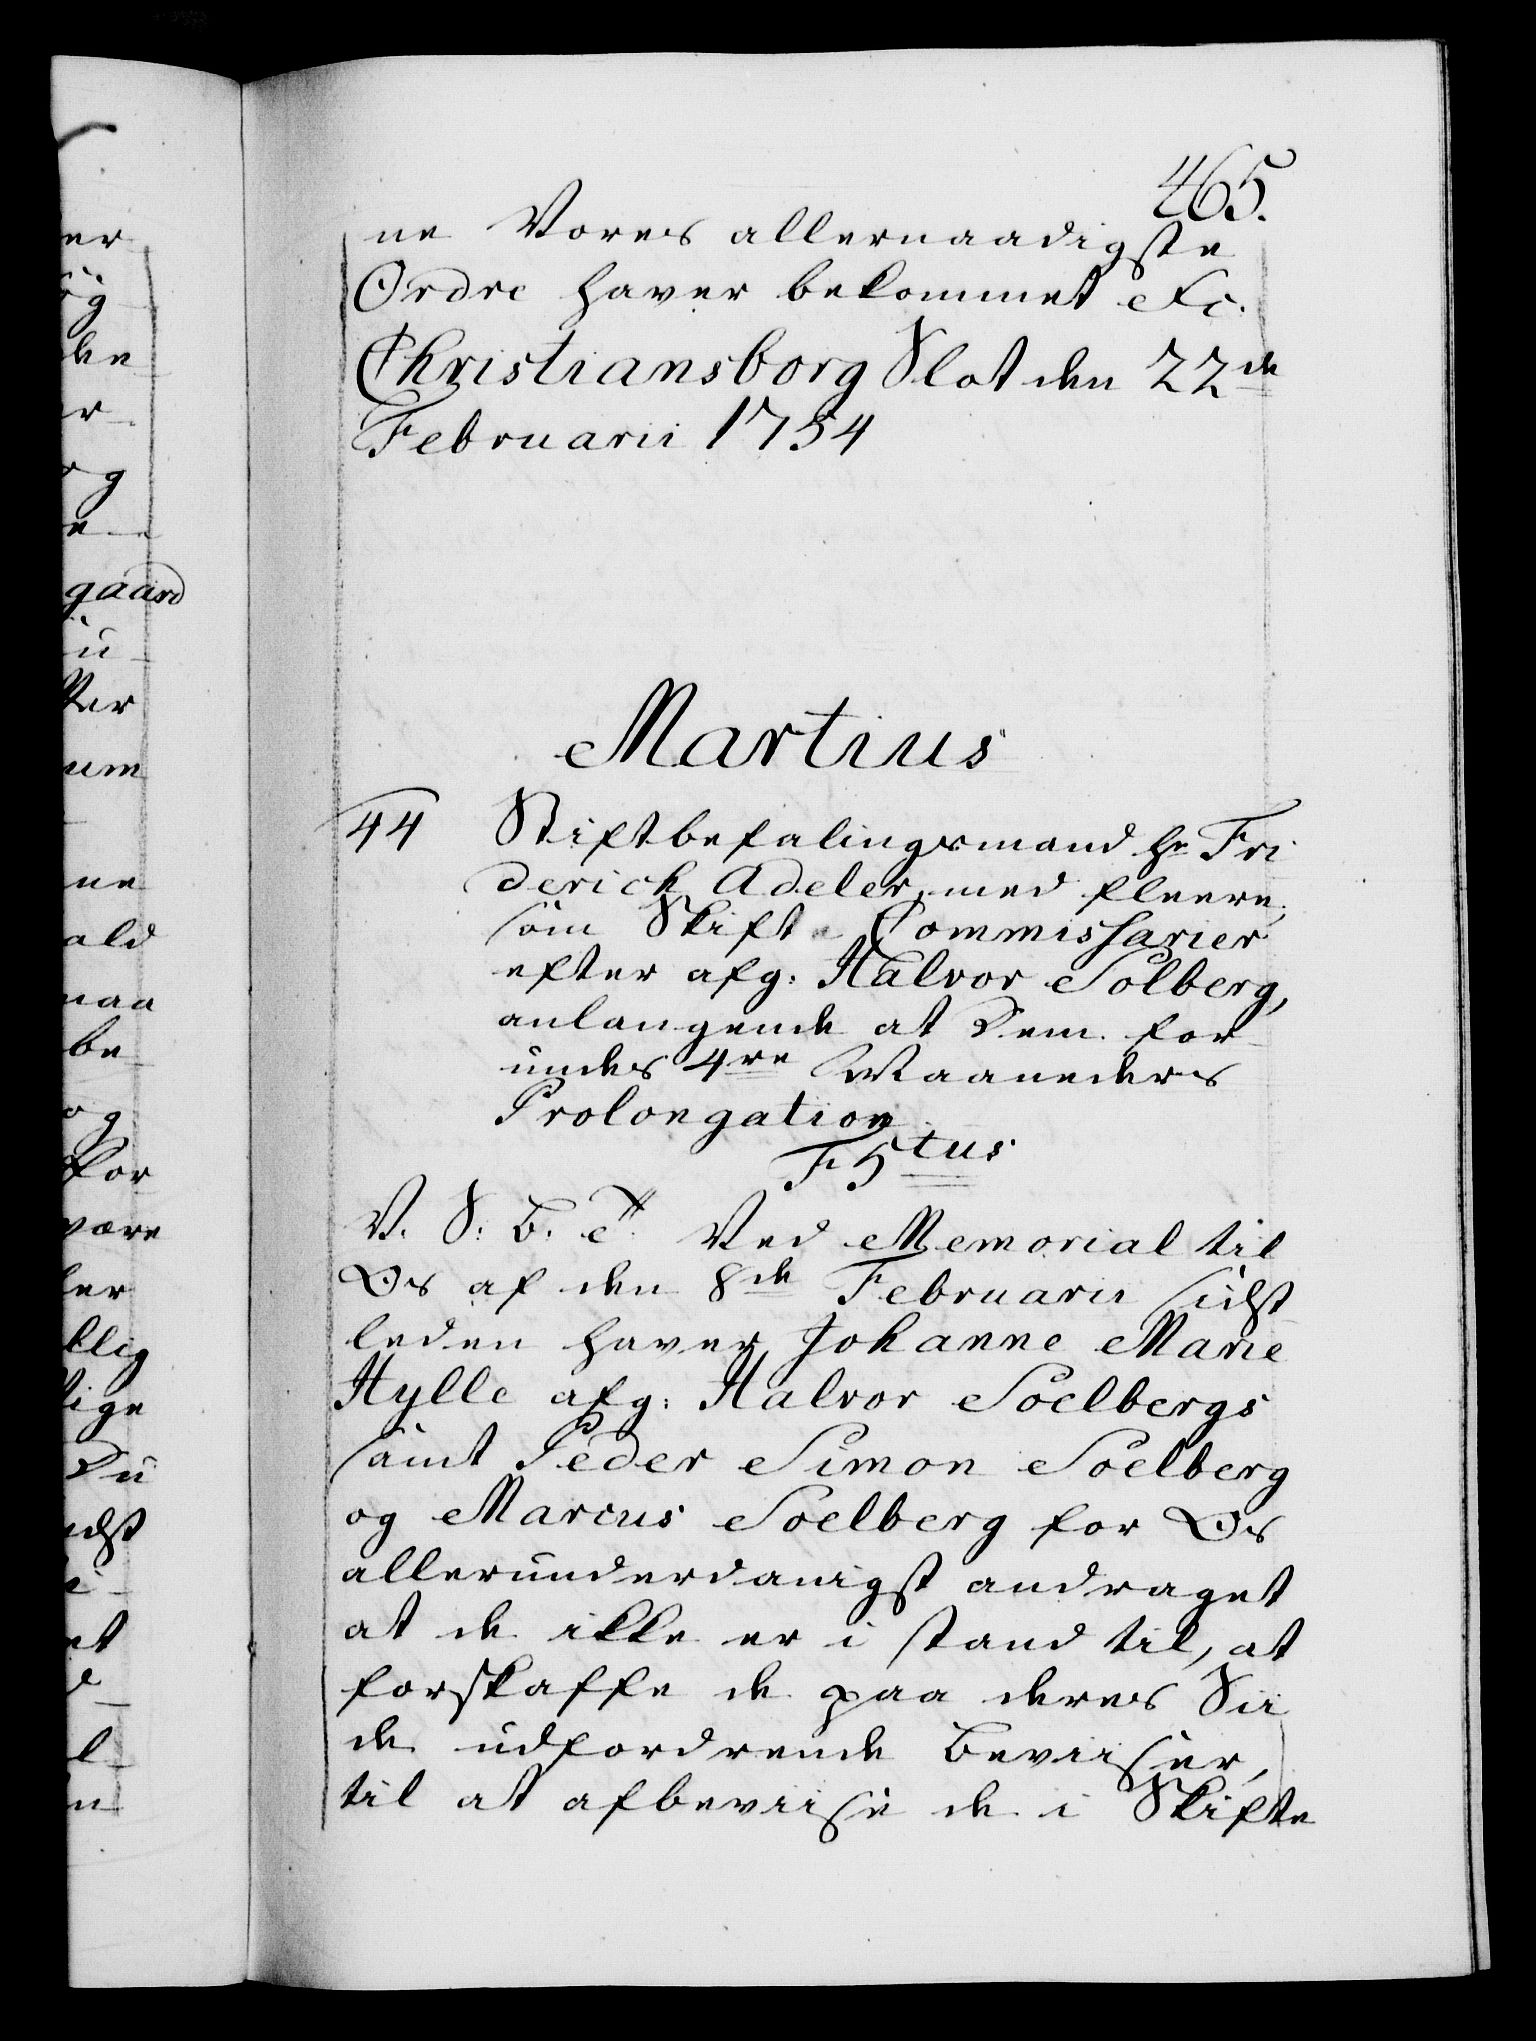 465.
ne Vores allernaadigste
Ordre haver bekommet &c.
Christiansborg Slot den 22de
Februarii 1754
Martius
44 Stiftbefalingsmand hr Fri
derich Adeler, med fleere,
som Skift-Commissarier
efter afg: Halvor Solberg,
anlangende at Dem. for
undes 4re Maaneders
Prolongation
F 5tus
V. S. B. &. Ved Memorial til
Os af den 8de Februarii sidst
leden haver Johanne Marie
Hylle afg: Halvor Soelbergs
samt Peder Simon Soelberg
og Marcus Soelberg for Os
allerunderdanigst andraget
at de ikke er i stand til, at
forskaffe de paa deres Sii
de udfordrende Beviiser,
til at afbeviise de i Skifte
er
ög
den
er
og
gaard
ü
ter
um
ne
ald
naa
be
og
for
være
ler
llig
lige
Du
idst
et
d
l
n